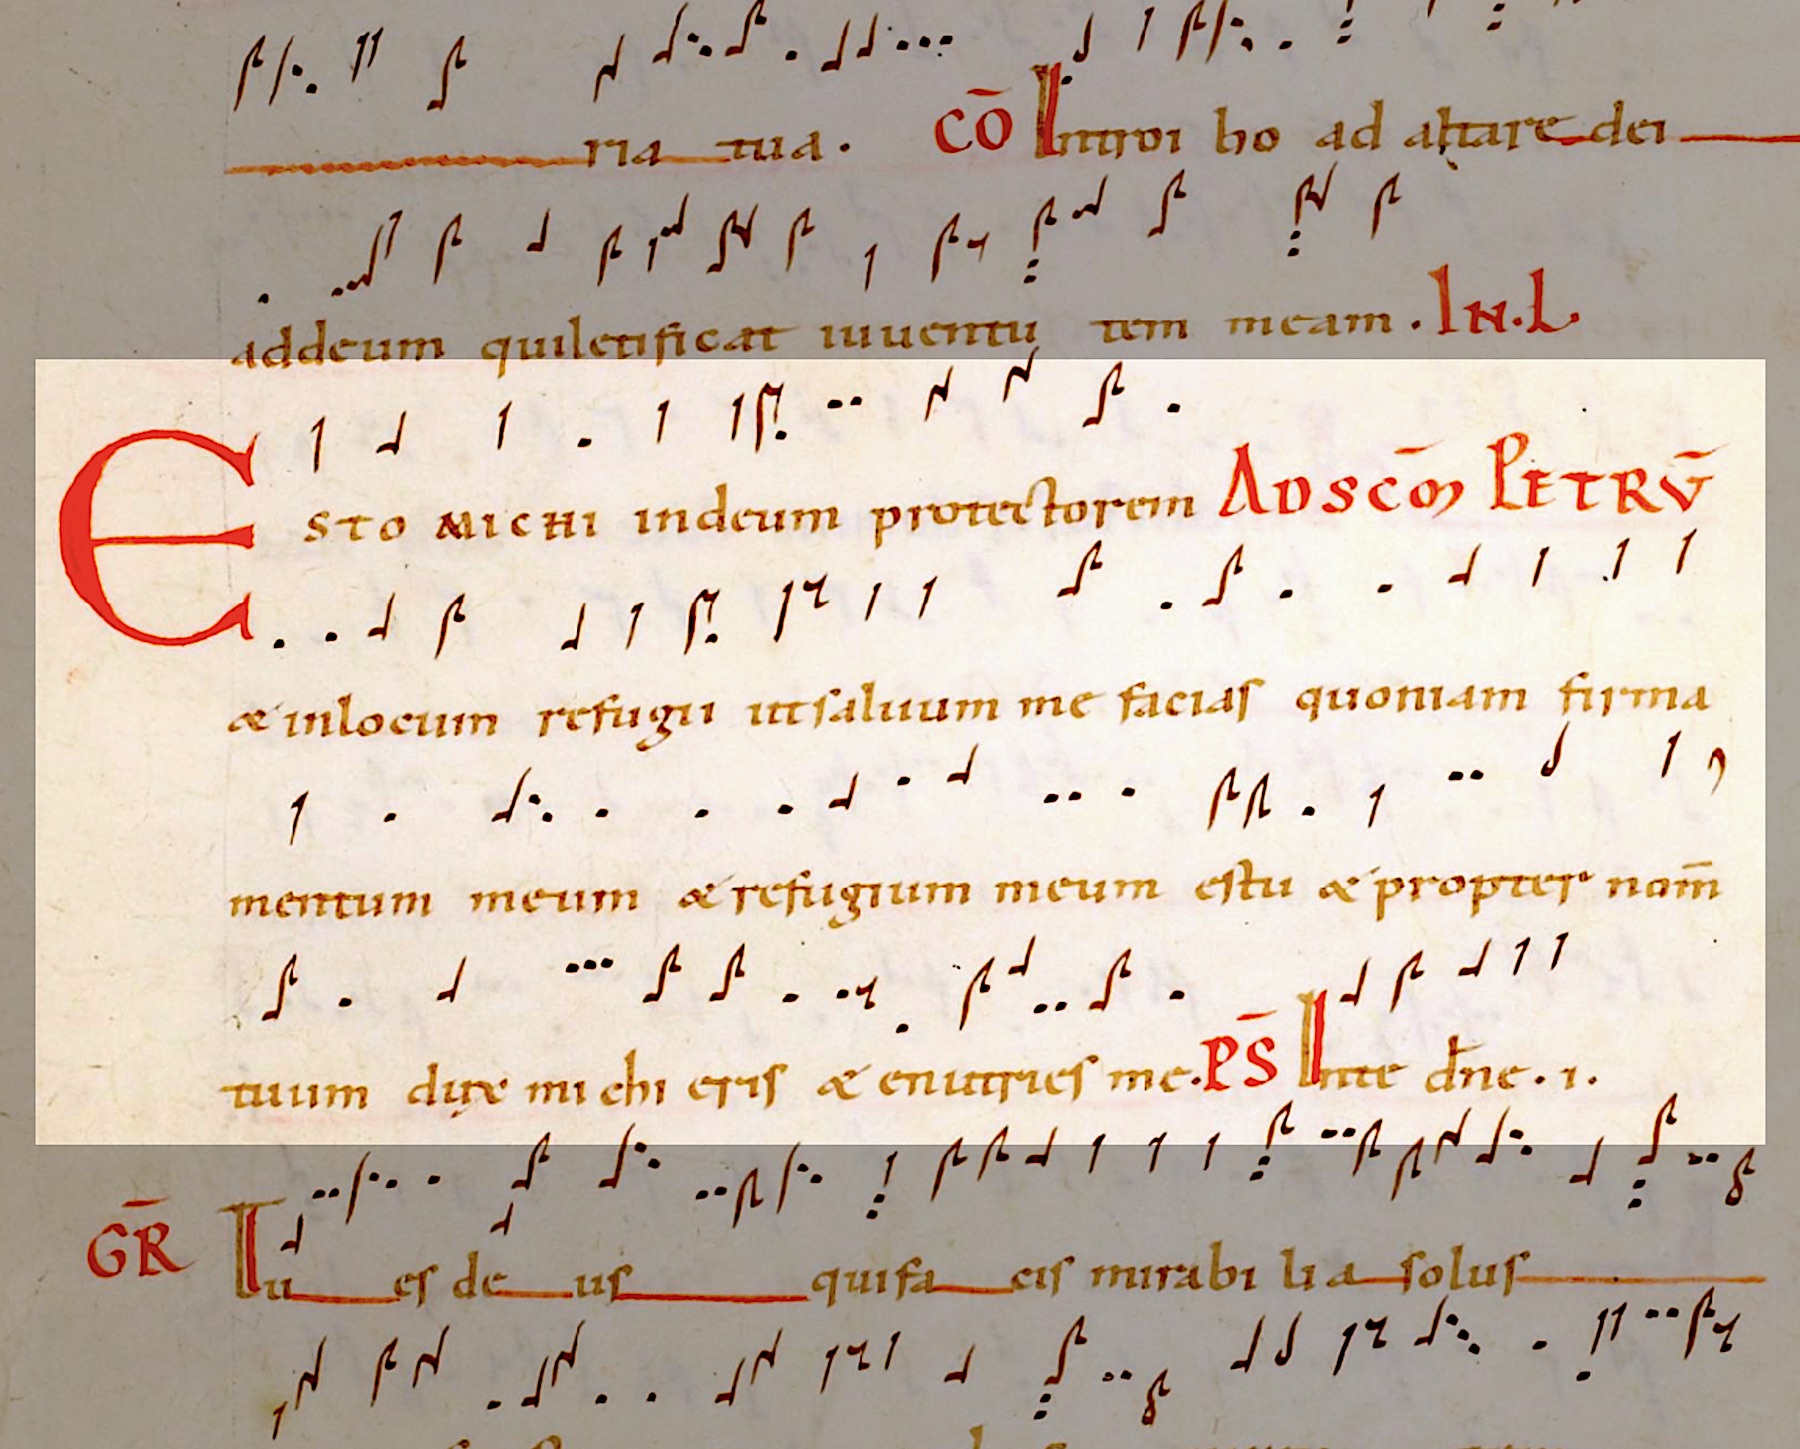 ria tua. CŌ Introi bo ad altare dei
addeum quiletificat iuuentu tem meam. IN.L
ESTO MICHI indeum protectorem ADSCŌM PETRŪ
& inlocum refugii utsaluum me facias quoniam firma
mentum meum & refugium meum estu & propter nom̄
tuum dux michi eris & enutries me. PS̄ Inte dn̄e. i.
GR̄ Tu es de us quifa cis mirabi li a solus